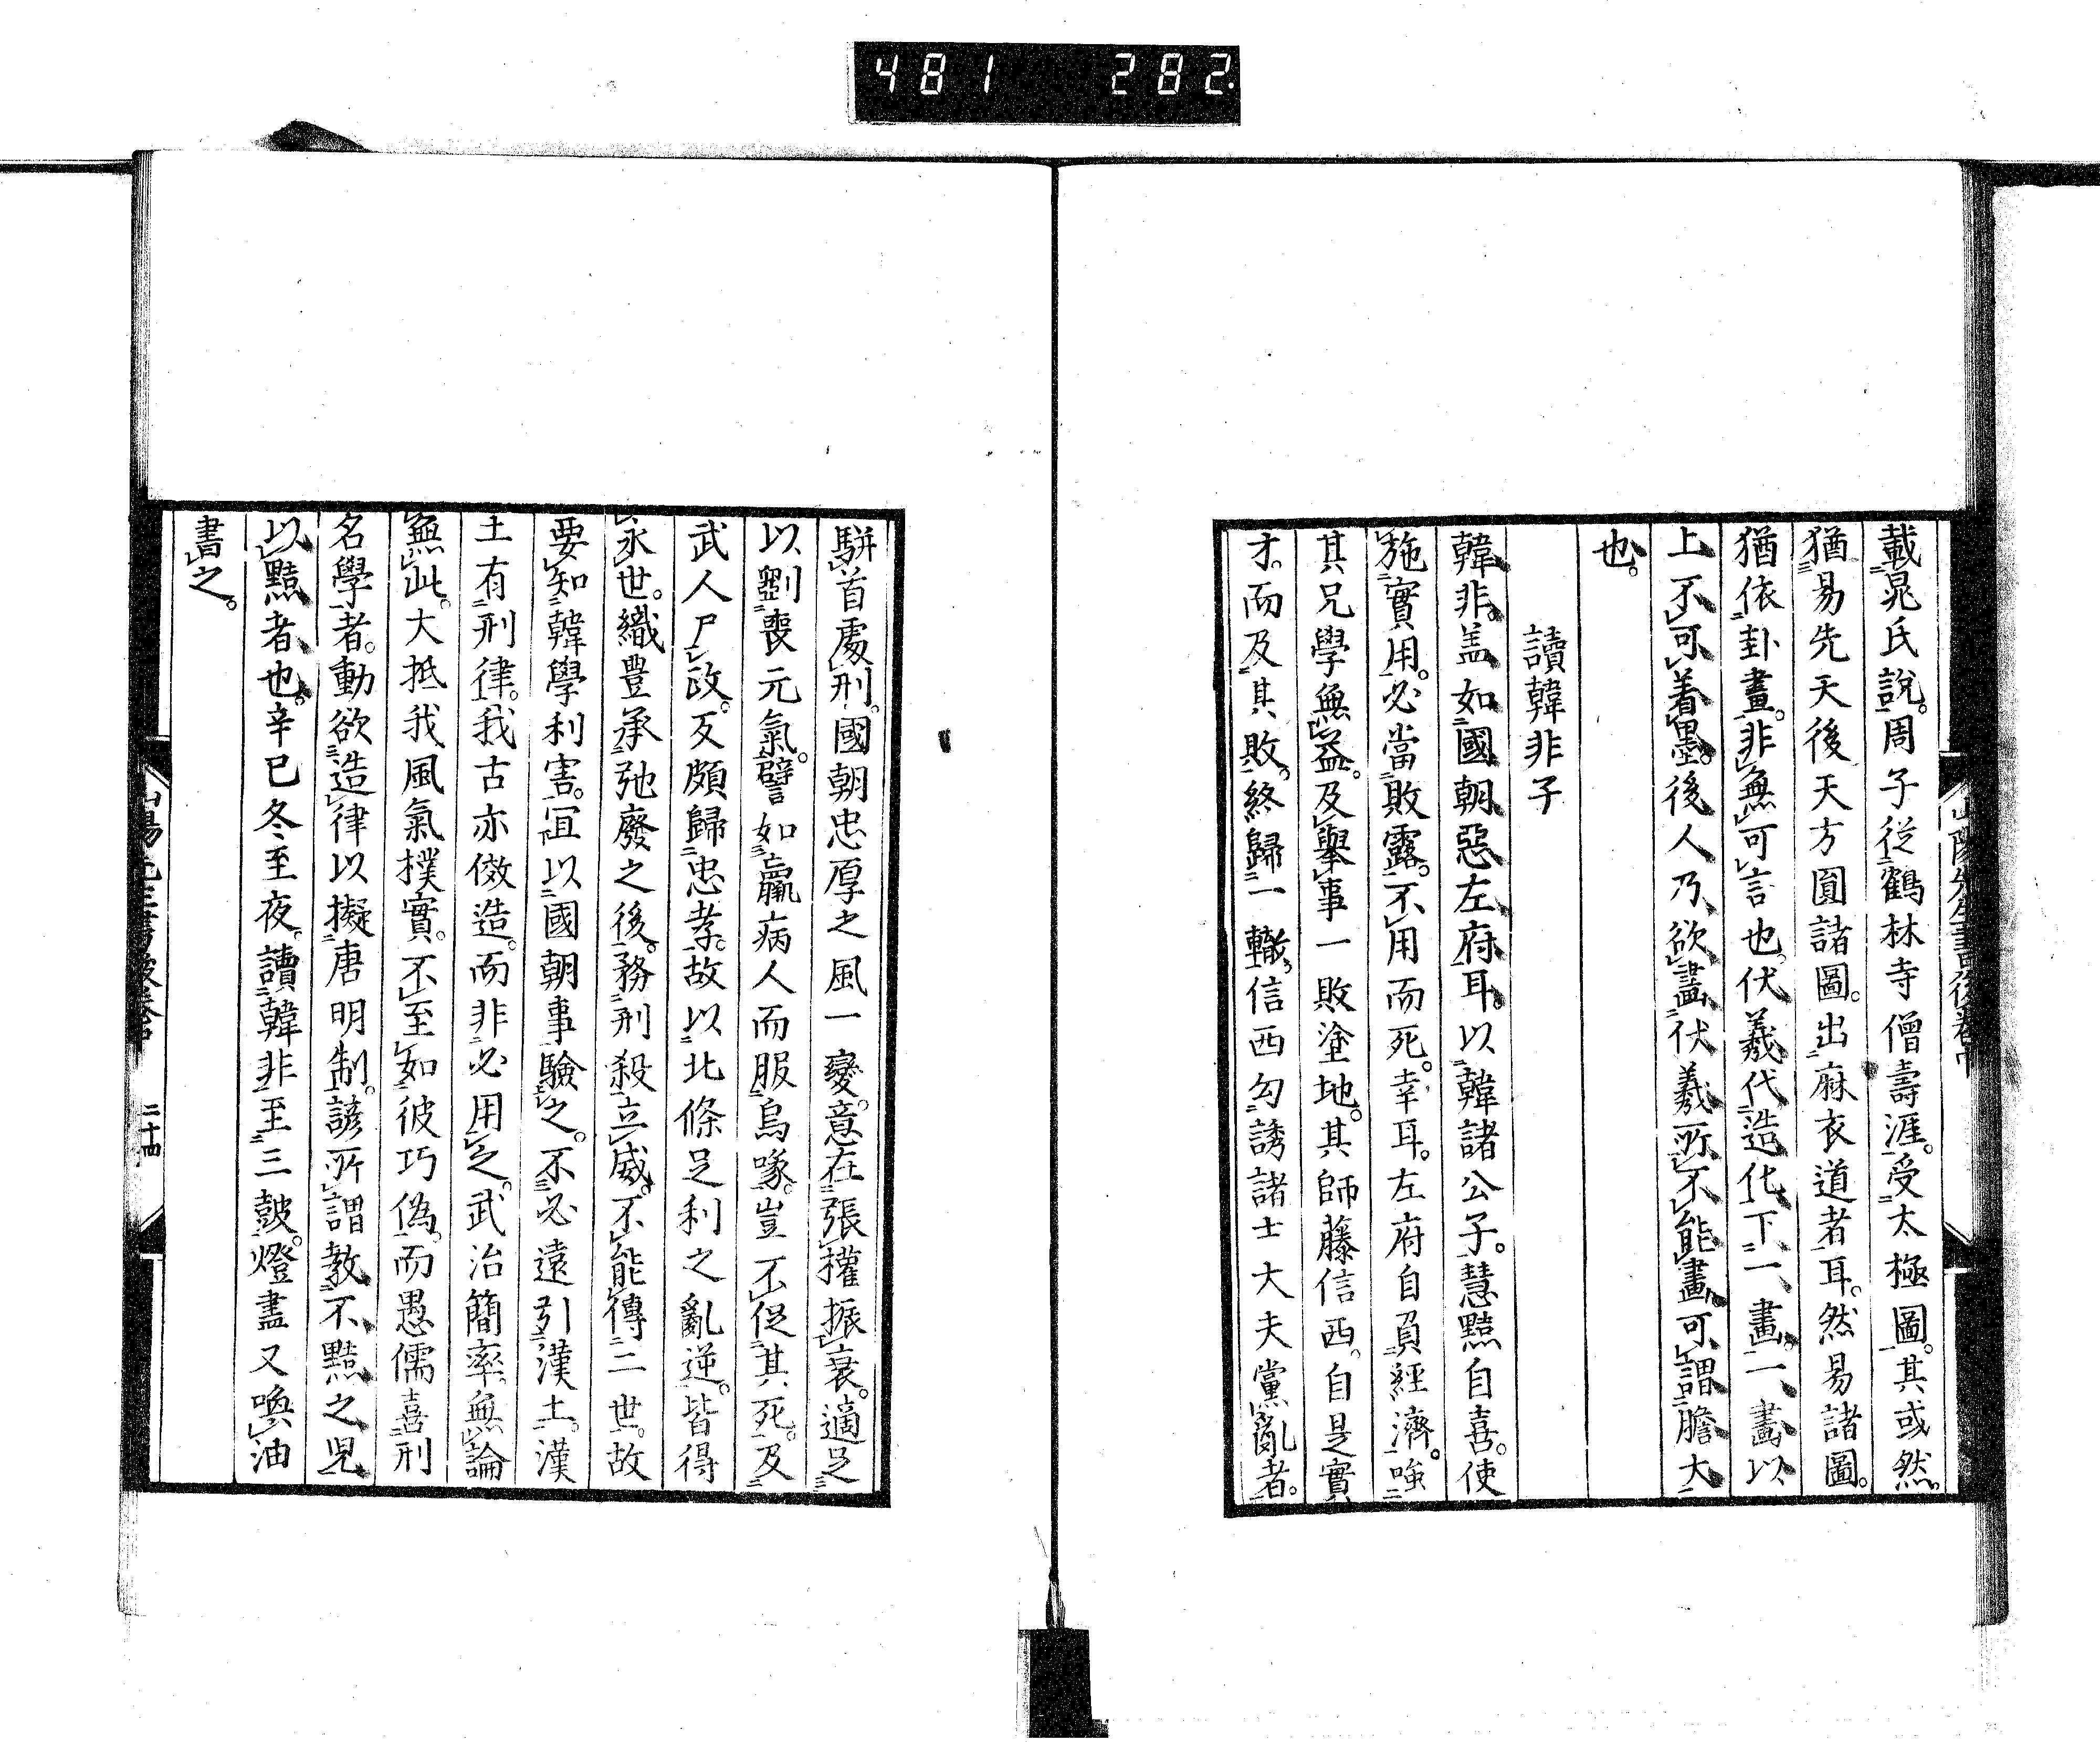 481 282
載晁氏說。周子從鶴林寺僧壽涯。受太極圖。其或然。
猶易先天後天方圓諸圖。出麻衣道者耳。然易諸圖。
猶依卦畫。非無可言也。伏羲代造化下一畫。一畫以
上不可着墨。後人乃欲畫伏羲所不能畫。可謂膽大
也。
讀韓非子
韓非。盖如國朝惡左府耳。以韓諸公子。慧黠自喜。使
施實用。必當敗露。不用而死。幸耳。左府自負經濟。嗤
其兄學無益。及舉事一敗塗地。其師藤信西。自是實
才。而及其敗。終歸一轍。信西勾誘諸士大夫黨亂者。
駢首處刑。國朝忠厚之風一變。意在張權振衰。適足
以劉喪元氣。譬如羸病人而服烏喙。豈不促其死。及
武人尸政。反頗歸忠孝。故以北條足利之亂逆。皆得
永世。織豊承弛廢之後。務刑殺立威。不能傳二世。故
要知韓學利害。宜以國朝事驗之。不必遠引漢土。漢
土有刑律。我古亦倣造。而非必用之。武治簡率。無論
無此。大抵我風氣撲實。不至如彼巧僞。而愚儒喜刑
名學者。動欲造律以擬唐明制。諺所謂教不黠之児
以黠者也。辛巳冬至夜。讀韓非至三皷。燈盡又喚油
書之。
山陽先生書後卷中 二十四